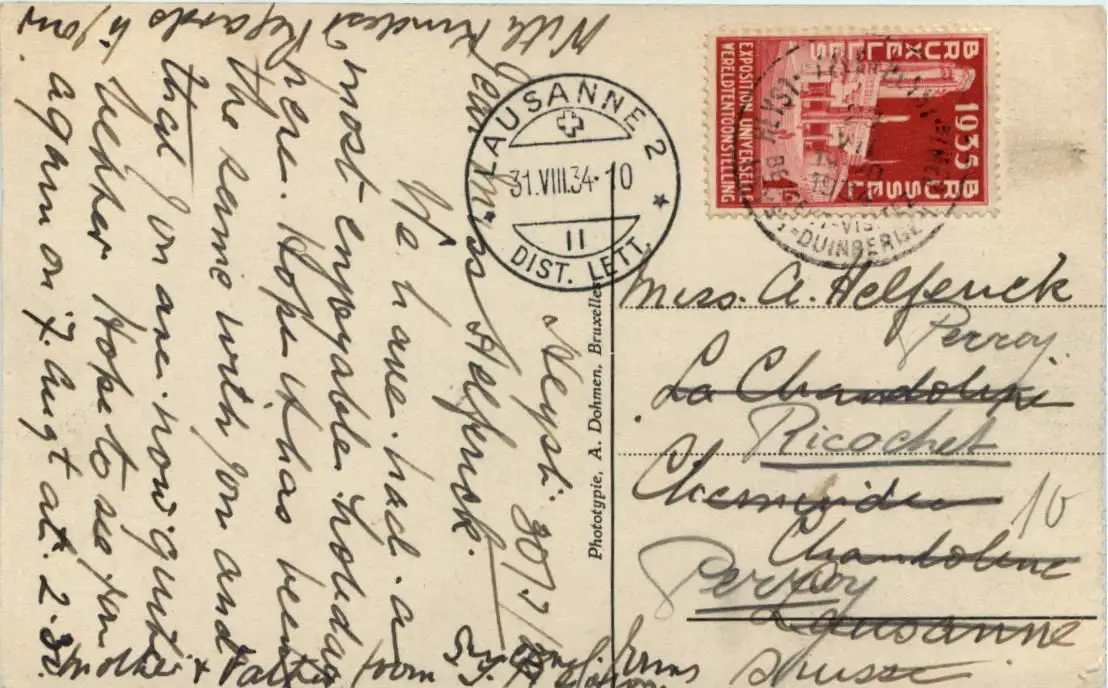 Heyst. 30/7/
Dear Miss Helferick.
We have had a
most enjoyable holiday
here. Hope it has been
the same with you and
that you are now quite
better Hope to see you
again on 7. Augt at. 2.30.
With Kindest Regards to your
Mother & Father from
Phototypie, A. Dohmen, Bruxelles
LAUSANNE 2
31.VIII.34-10
11
DIST. LETT.
BRUXELLES
1935
BRUSSEL
EXPOSITION UNIVERSELLE
WERELDTENTOONSTELLING
HEYST
DUINBERGEN
Miss. A. Helferick
Perroy.
La Chandoline
Ricochet
Chemin de
10
Chandoline
Perroy
Lausanne
Suisse